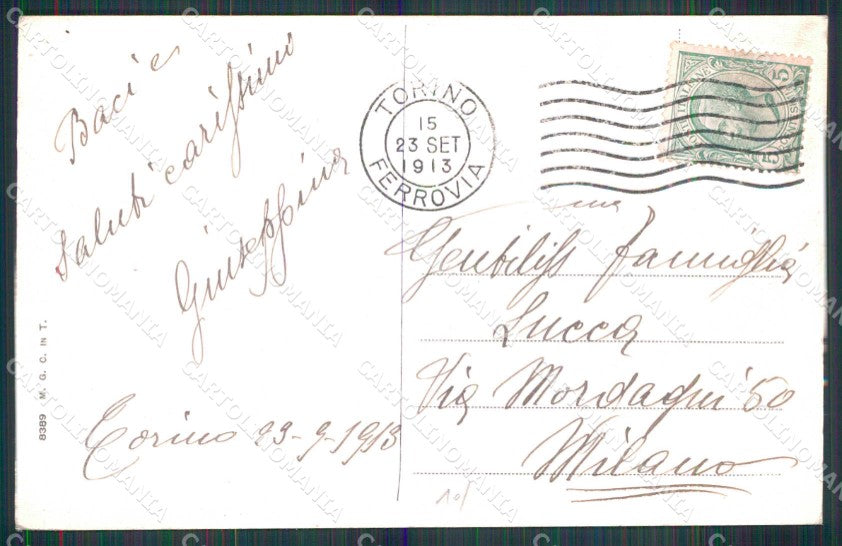 Baci e
Saluti carissimi
Giuseppina
Torino 23-9-1913
8389 M. G. C. IN T.
TORINO
15
23 SET
1913
FERROVIA
Gentiliss ma Famiglia
Lucca
Via 50
Milano
5
5
CARTOLINOMANIA